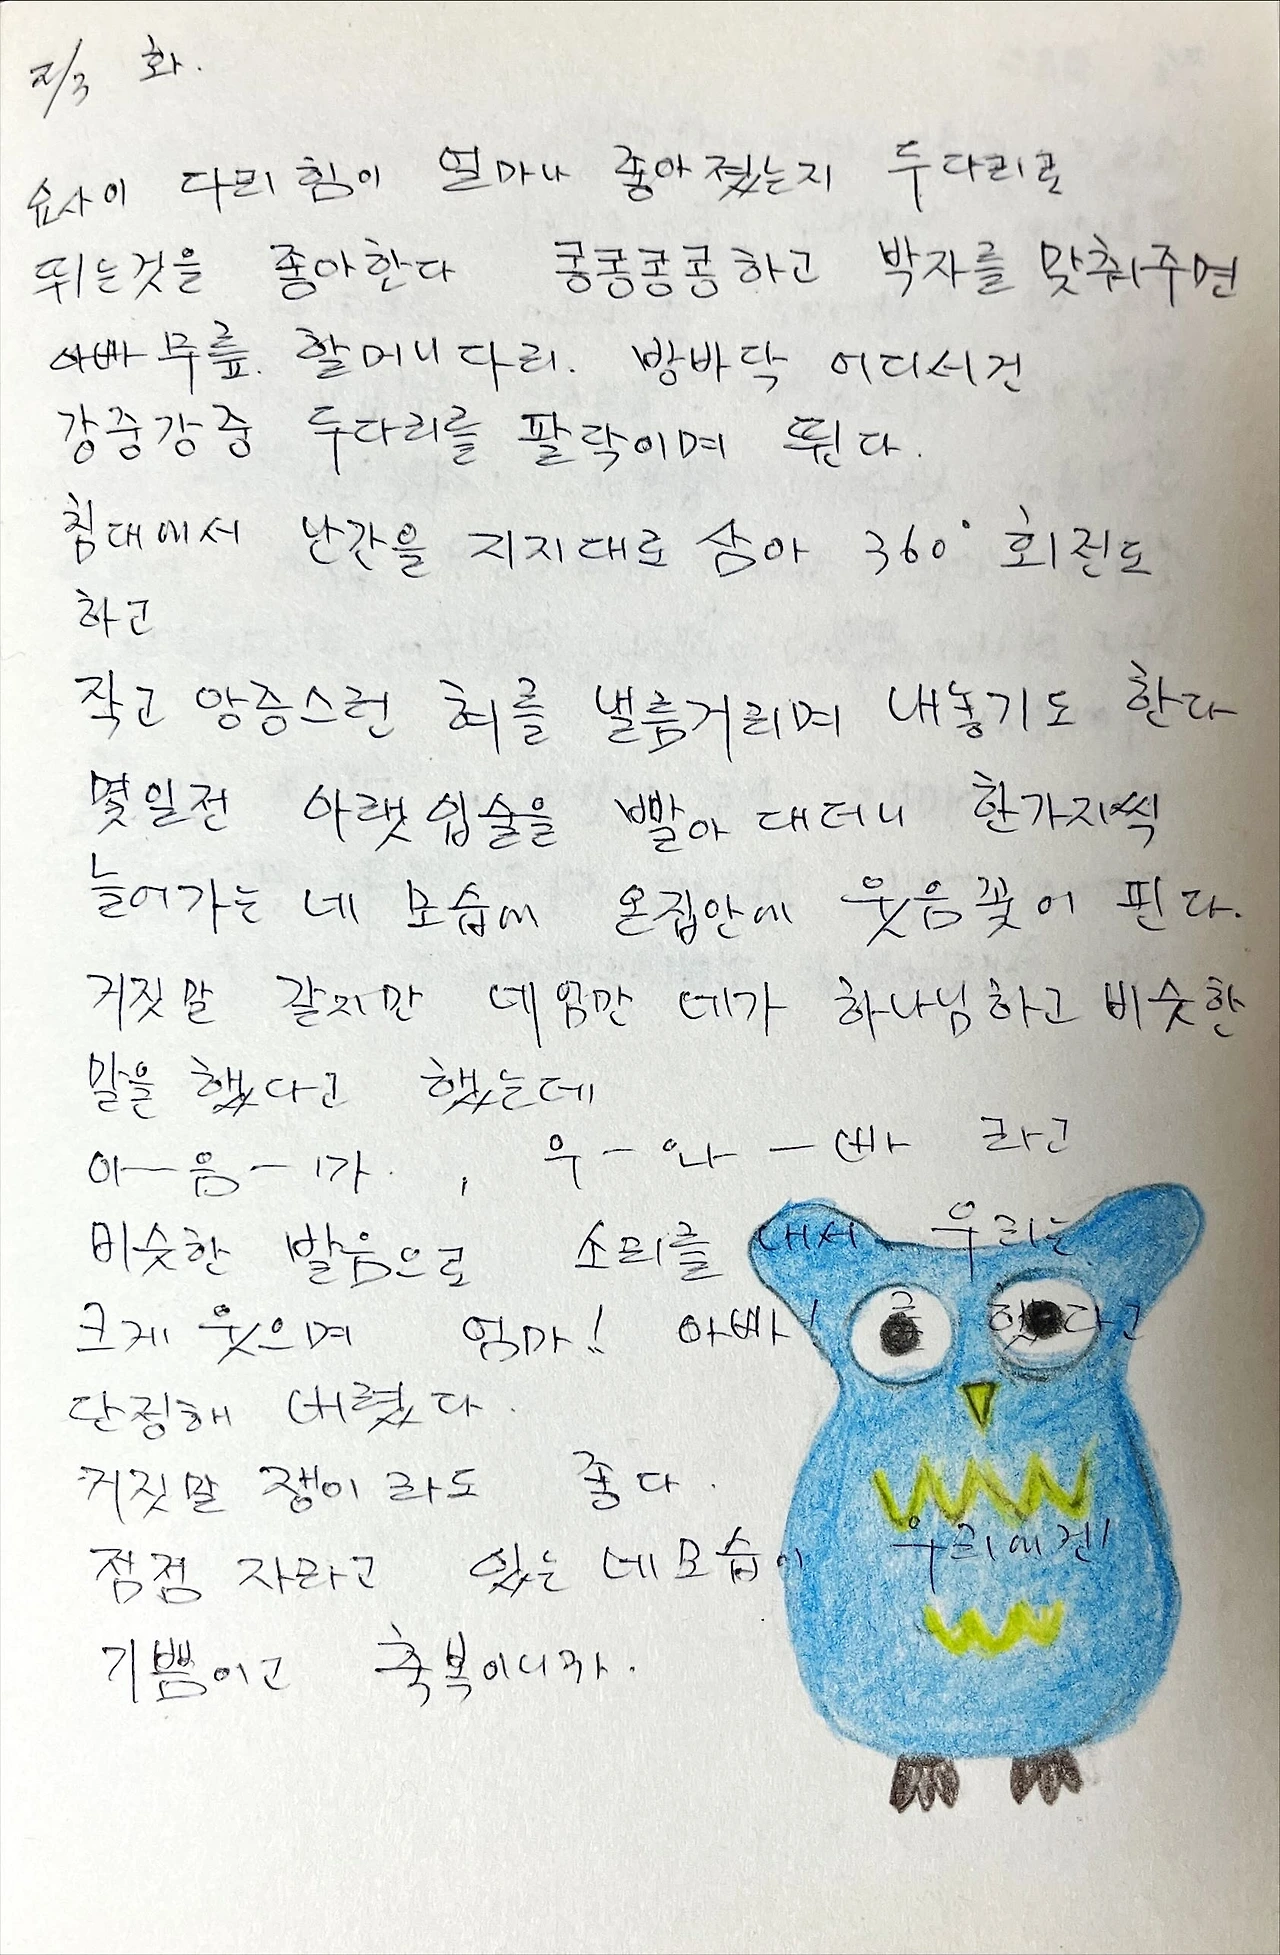 요사이 다리힘이 얼마나 좋아졌는지 두다리로
뛰는것을 좋아한다 콩콩콩콩하고 박자를 맞춰주면
아빠무릎. 할머니다리. 방바닥 어디서건
강중강중 두다리를 팔락이며 뛴다.
침대에서 난간을 지지대로 삼아 360° 회전도
하고
작고 앙증스런 혀를 낼름거리며 내놓기도 한다
몇일전 아랫입술을 빨아대더니 한가지씩
늘어가는 네 모습에 온집안에 웃음꽃이 핀다.
거짓말 같지만 네엄만 네가 하나님하고 비슷한
말을 했다고 했는데
아ー음ー마. , 우ー와ー빠 라고
비슷한 발음으로 소리를 내서 우리는
크게 웃으며 엄마!! 아빠! 를 했다고
단정해 버렸다.
거짓말 쟁이라도 좋다.
점점 자라고 있는 네모습이 우리에겐
기쁨이고 축복이니까.